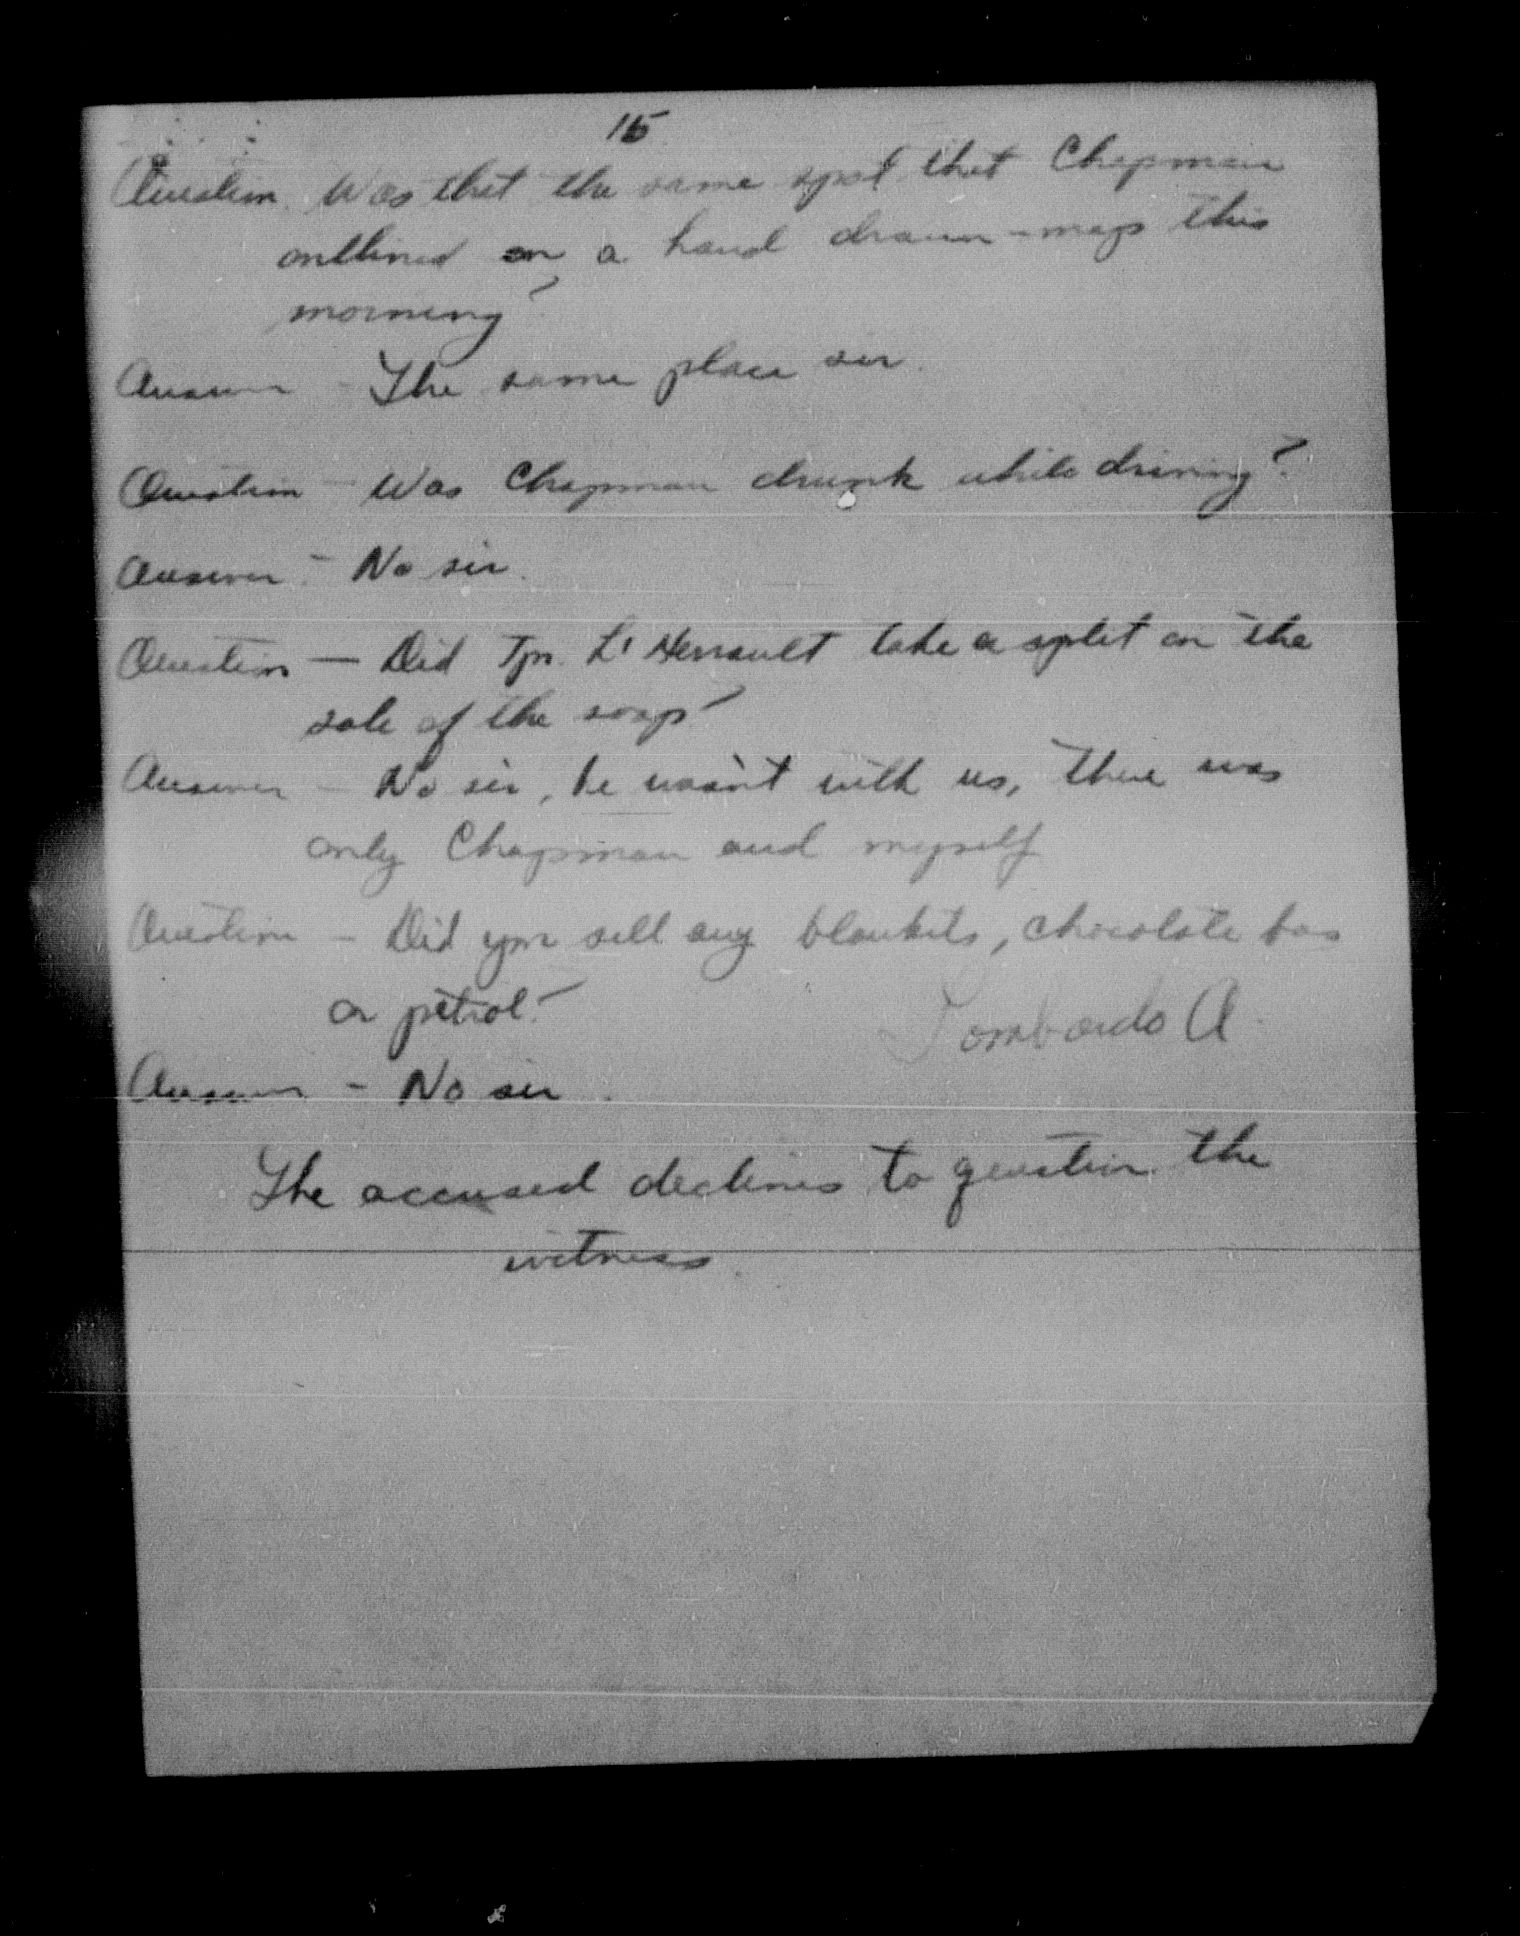 15
Question. Was that the same spot that Chapman
outlined on a hand drawn-map this
morning?
Answer - The same place sir.
Question - Was Chapman drunk while driving?
Answer - No sir.
Question - Did Tpr. L'Herrault take a split on the
sale of the soap?
Answer - No sir, he wasn't with us, there was
only Chapman and myself
Question - Did you sell any blankets, chocolate bas
or petrol?
Lombardo A.
Answer - No sir.
The accused declines to question the
witness.